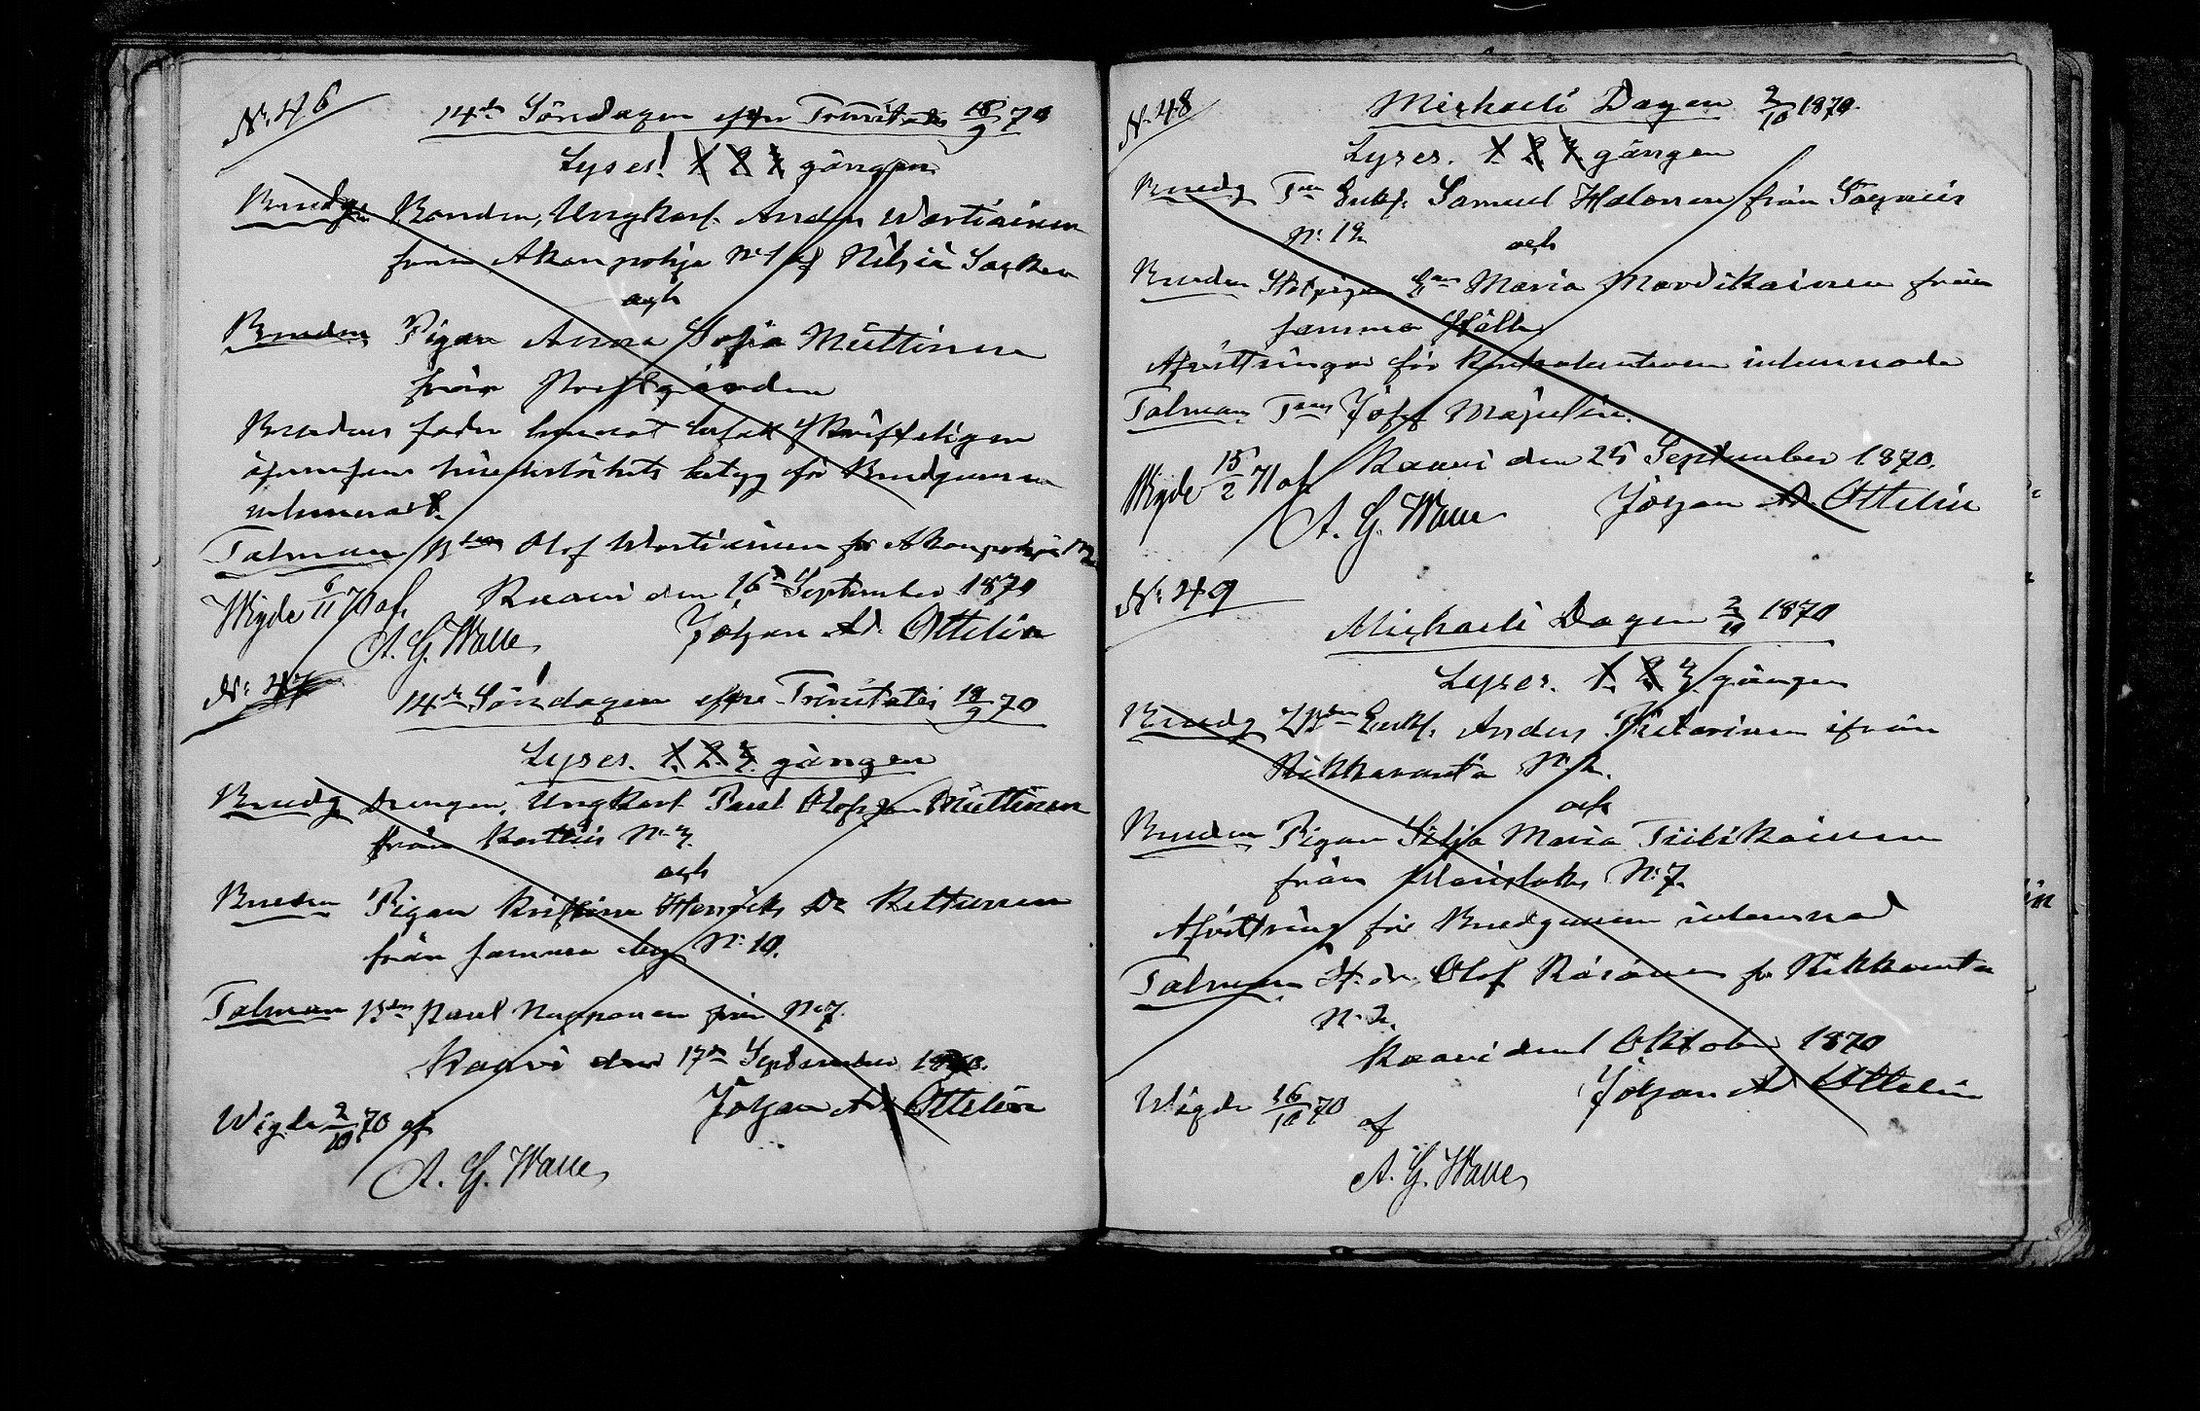 N:46
14de Söndagen efter Trinitatis 18/9 70
Lyses! 1. 2. 3. gången
Brudg. Bonden, Ungkarl. Anders Wartiainen
från Akonpohja N:1 af Nilsiä Socken
och
Bruden Pigan Anna Sofia Miettinen
från Prestgården
Brudens fader honom befatt skriftligen
hinderlöshets betyg för Brudgummen
inlemnadt.
Talman Bden Olof Wartiainen fr Akonpohja N:2
Wigde 6/11 70 af Kaavi den 16de September 1870
A. G. Walle Johan Ad. Ottelin
N: 47
14de Söndagen efter Trinitatis 18/9 70
Lyses. 1. 2. 3. gången
Brudg Drengen, Ungkarl Paul Olofson Miettinen
från Kortteis N:3
och
Bruden Pigan Kristina Henriks Dr Kettunen
från samma by N:10.
Talman Bden Paul Nupponen från N:7.
Kaavi den 17de September 1870.
Johan Ad Ottelin
Wigde 2/10 70 af
A. G. Walle
N:48
Michaeli Dagen 2/10 1870.
Lyses. 1. 2. 3. gången
Brudg Tn Enkf. Samuel Halonen från Sägneis
N:12
och
Bruden En Maria Mardikainen från
samma ställe
Afvittringar för Kontrahenterna inlemnade
Talman Tn Josef Majulin.
Wigde 15/2 71 af Kaavi den 25 September 1870.
A. G. Walle Johan Ad Ottelin
N:49
Michaeli Dagen 2/10 1870
Lyses. 1. 2. 3. gången
Brudg Enkf. Anders Pietarinen ifrån
Rikkaranta N:2.
och
Bruden Pigan Silja Maria Tiilikainen
från N:7.
Afvittring för Brudgummen inlemnad
Talman Olof Räsänen fr Rikkaranta
N:2.
Kaavi den 1 Oktober 1870
Johan Ad Ottelin
Wigde 16/10 70
af
A. G. Walle